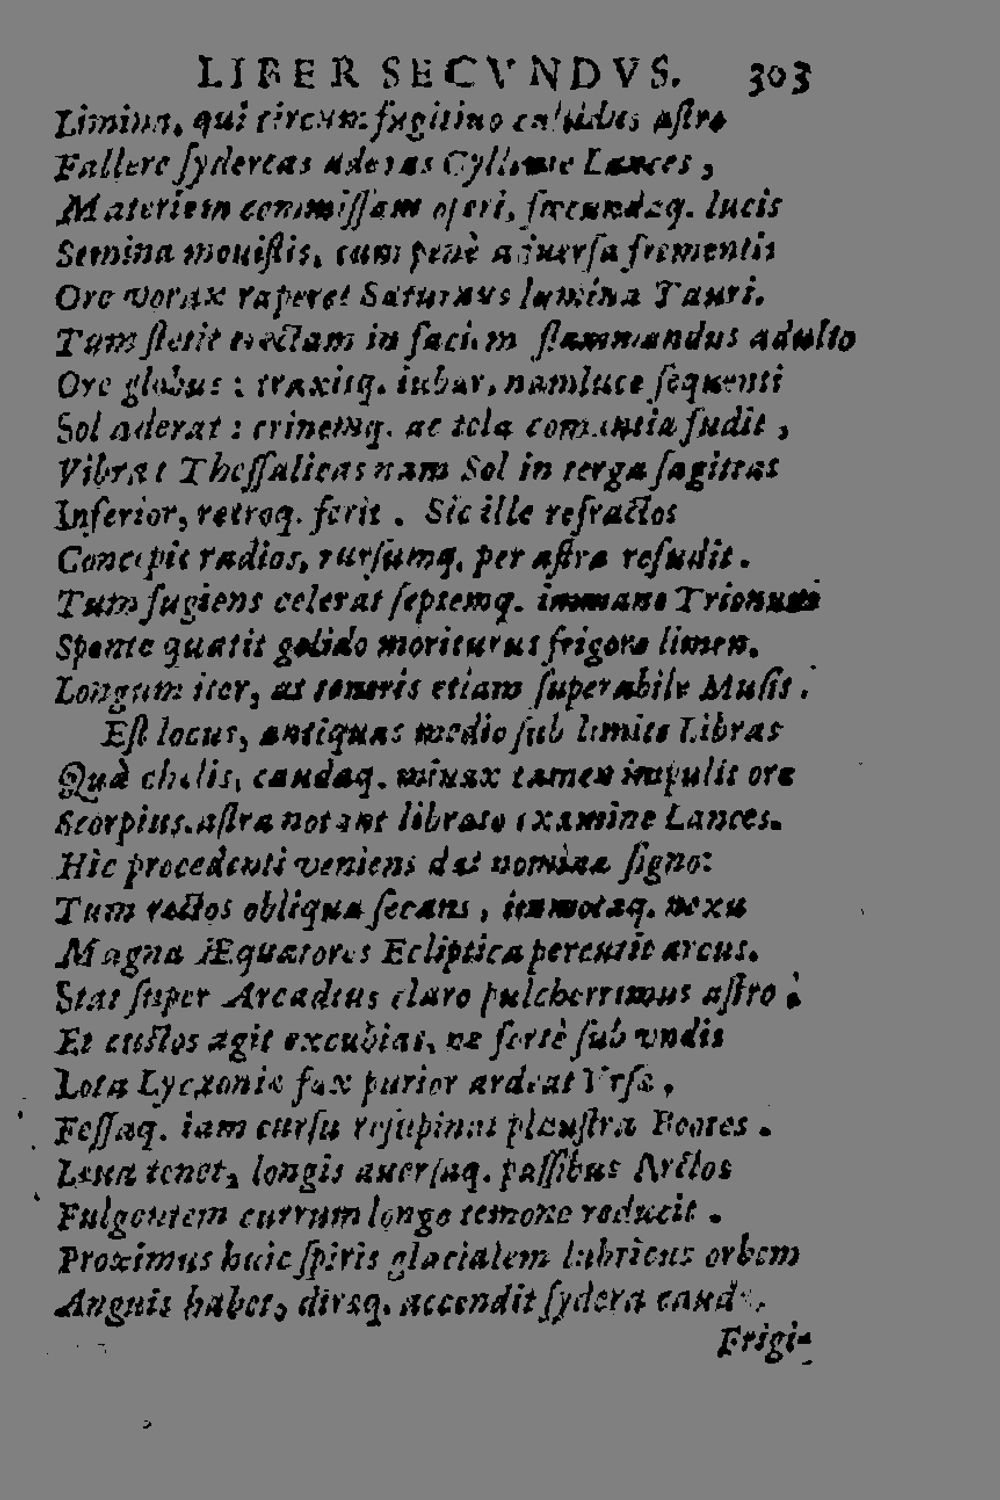 LIBER SECVNDVS. 303
Limina, qui circum fugitiuo calidus astro
Fallere sydereas Lances,
Materiem commissam operi, foecundaq. lucis
Semina mouistis, cum penè aduersa frementis
Ore vorax raperet Saturnus lumina Tauri.
Tum stetit euectam in faciem flammandus adulto
Ore globus : traxitq. iubar, nam luce sequenti
Sol aderat : crinemq. ac tela comantia fudit ,
Vibrat Thessalicas nam Sol in terga sagittas
Inferior, retroq. ferit . Sic ille refractos
Concepit radios, rursumq. per astra refudit .
Tum fugiens celerat septemq. immane Trionum
Sponte quatit gelido moriturus frigore limen.
Longum iter, at teneris etiam superabile Musis .
Est locus, antiquas medio sub limite Libras
Quà chelis, caudaq. minax tamen impulit ore
Scorpius. astra notant librato examine Lances.
Hic procedenti veniens dat nomina signo:
Tum rectos obliqua secans , immotaq. nexu
Magna Æquatores Ecliptica percutit arcus.
Stat super Arcadius claro pulcherrimus astro :
Et custos agit excubias, ne fortè sub vndis
Lota Lycaoniæ fax purior ardeat Vrsæ ,
Fessaq. iam cursu resupinat plaustra Bootes .
Leua tenet, longis auersaq. passibus Arctos
Fulgentem currum longo temone reducit .
Proximus huic spiris glacialem lubricus orbem
Anguis habet, diraq. accendit sydera cauda,
Frigi-